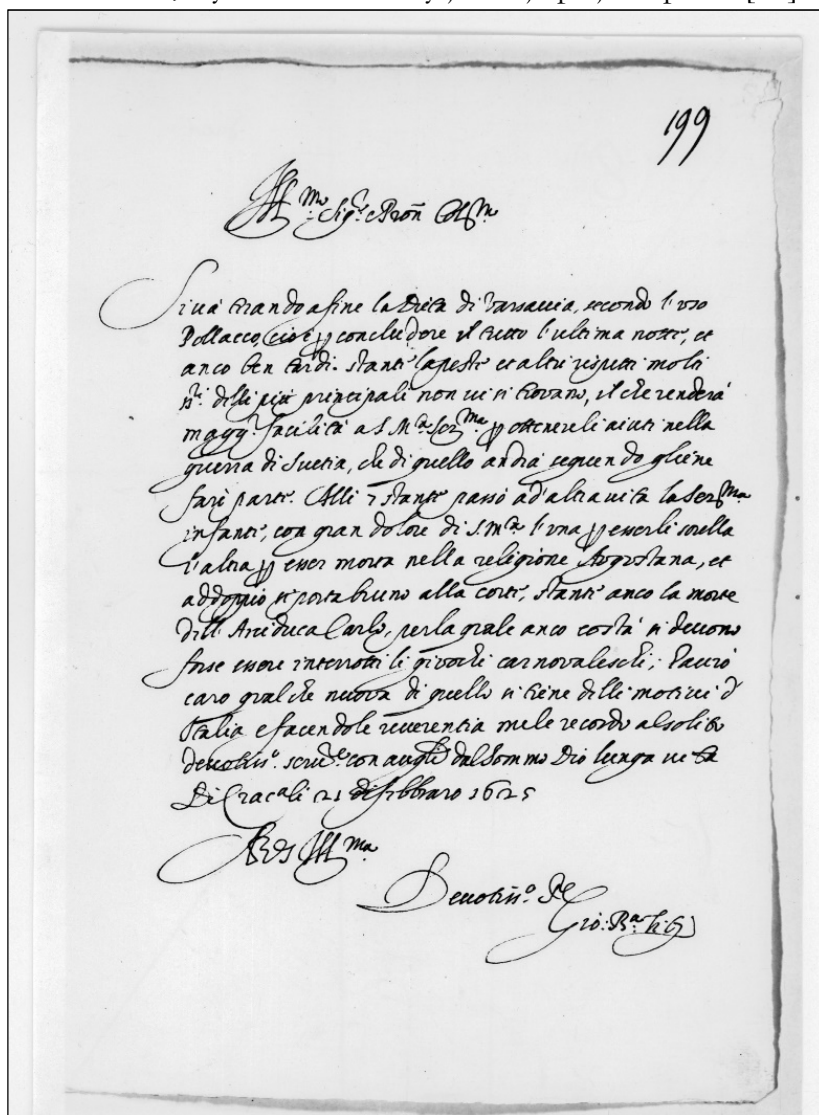 199
Ill.mo Sig.r e Pron Col.mo
Si uà tirando a fine la Dieta di Varsauia, secondo l'uso
Pollacco, cioè p concludere il tutto l'ultima notte, et
anco ben tardi. stante la peste et altri rispetti molti
ss.ri delli più principali non ui si trovano, il che renderà
magg.r facilità a S. M.tà Ser.ma p ottenere li aiuti nella
guerra di Suetia, che di quello andrà seguendo gliene
farò parte. Alli stante passò ad'altra uita la Ser.ma
infante, con gran dolore di S. M.tà l'una p esserli sorella
l'altra p esser morta nella religione Augustana, et
addoppio si porta bruno alla corte, stante anco la morte
dell'Arciduca Carlo, per la quale anco costà si deuono
forse essere interrotti li giuochi carnovaleschi; hauerò
caro qualche nuova di quello si tiene delli motiui d'
Italia e facendole reuerentia me le recordo al solito
deuotiss.o seru.re con dal Sommo Dio lunga uita
Di Crac.a li 21 di febbraro 1625
Di V S Ill.ma
Deuotiss.o S.re
Gio: B.a